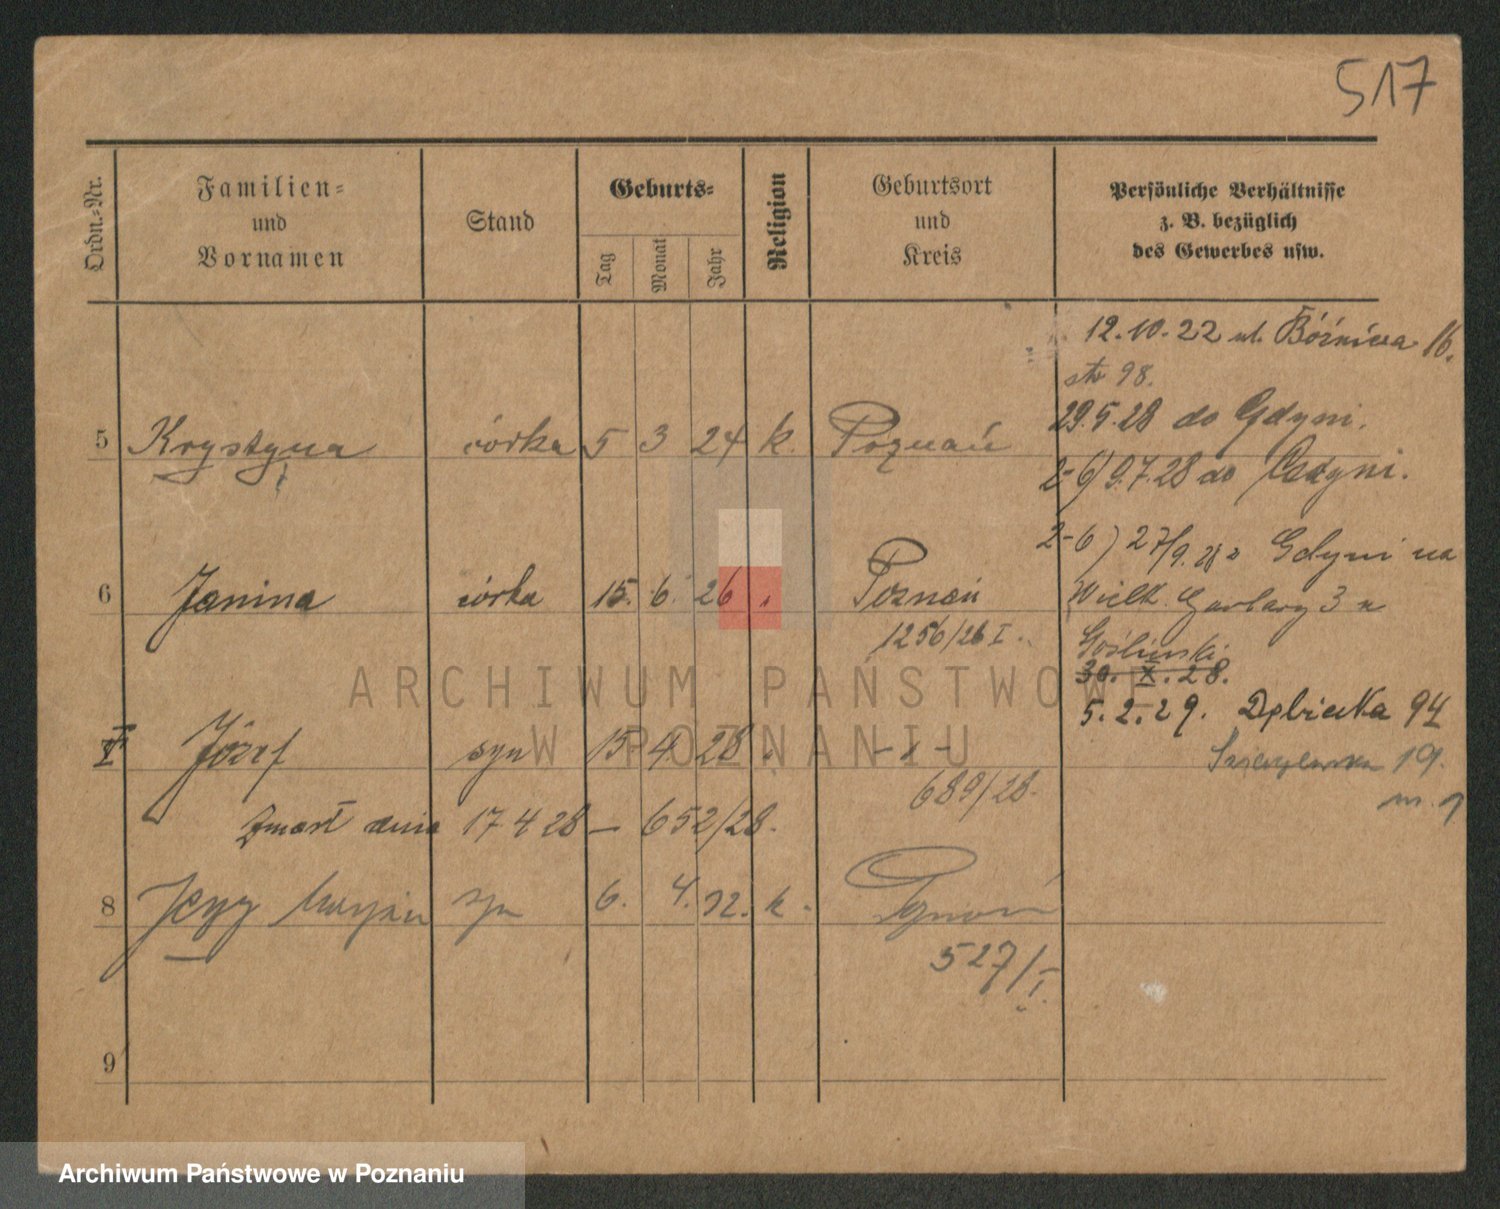 517
Ordn.-Nr.
Familien-
und
Vornamen
Stand
Geburts-
Tag
Monat
Jahr
Religion
Geburtsort
und
Kreis
Persönliche Verhältnisse
z. B. bezüglich
des Gewerbes usw.
12.10.22 ul. Bóźnicza 16.
str 98.
29.5.28 do Gdyni.
5 Krystyna córka 5 3 24 k. Poznań
2-6) 9.7.28 do Gdyni.
2-6) 27/9. 28 z Gdyni na
6 Janina córka 15. 6. 26 Poznań
Wielk. Garbary 3 u
1256/26 I.
Goślinski
30. X. 28.
5. 2. 29. Dębiecka 94
Józef syn 15 4 28 - " -
19.
689/28.
m.
Zmarł dnia 17 4 28 — 652/28.
8 Jerzy syn 6. 4. 32. k. Poznań
527/I.
9
ARCHIWUM PAŃSTWOWE
W POZNANIU
Archiwum Państwowe w Poznaniu